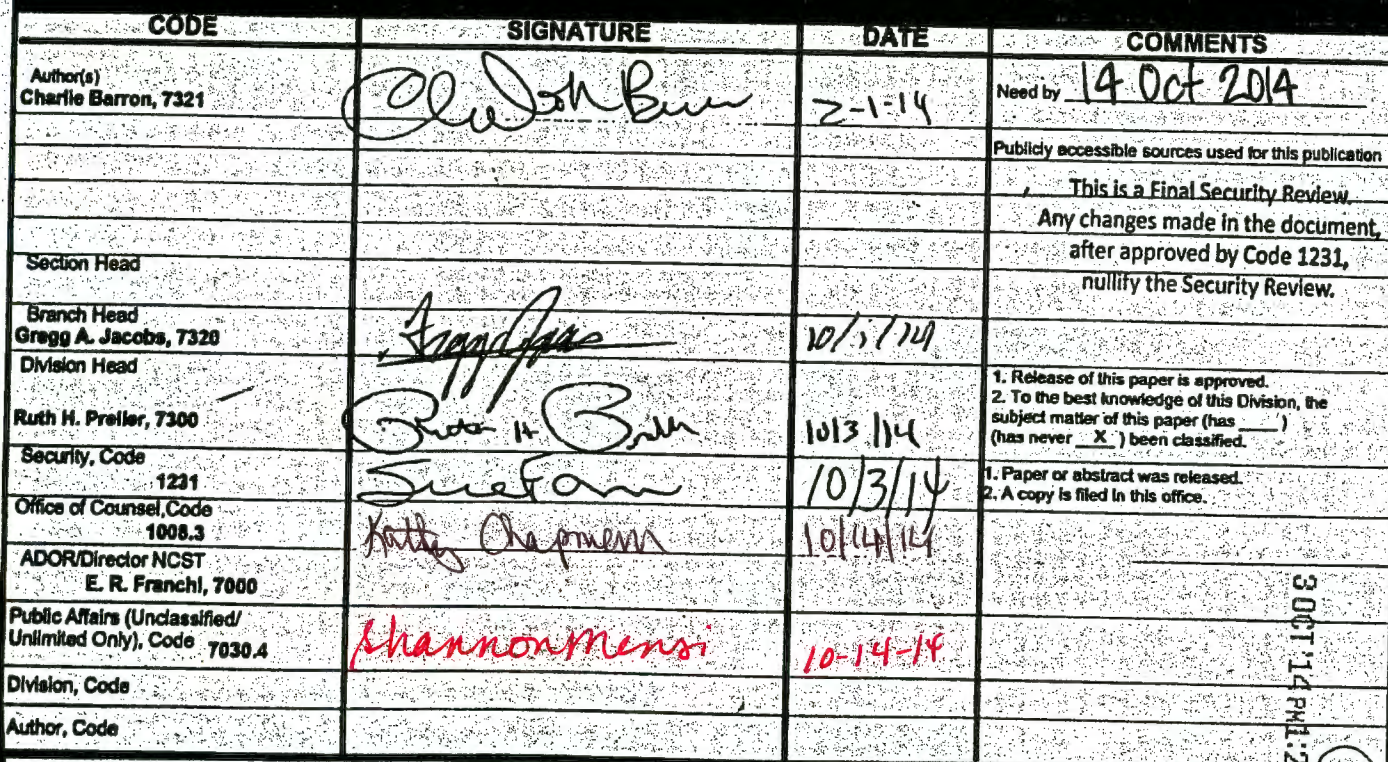 CODE SIGNATURE DATE COMMENTS
Author(s)
Charlie Barron, 7321
2-1-14
Need by 14 Oct 2014
Publicly accessible sources used for this publication
This is a Final Security Review.
Any changes made in the document,
after approved by Code 1231,
nullify the Security Review.
Section Head
Branch Head
Gregg A. Jacobs, 7320
Division Head
Ruth H. Preller, 7300
10/3/14
1. Release of this paper is approved.
2. To the best knowledge of this Division, the
subject matter of this paper (has ____)
(has never X ) been classified.
Security, Code
1231
10/3/14
1. Paper or abstract was released.
2. A copy is filed in this office.
Office of Counsel,Code
1008.3
Kathy Chapman
10/14/14
ADOR/Director NCST
E. R. Franchi, 7000
Public Affairs (Unclassified/
Unlimited Only), Code 7030.4
Shannon Mensi
10-14-14
Division, Code
Author, Code
3 OCT '14 PM 1:2